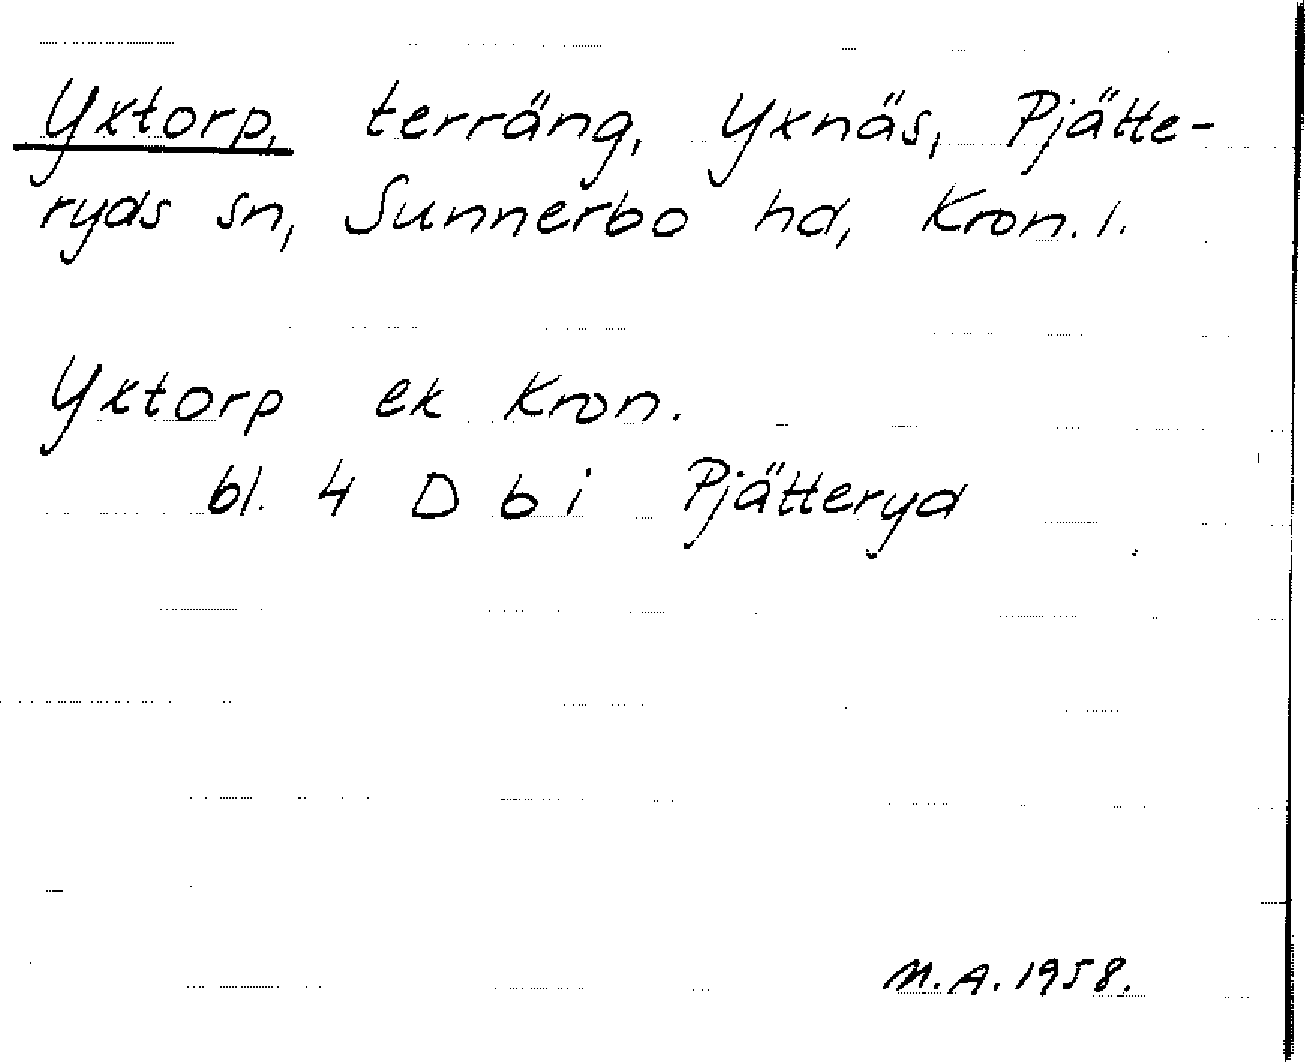 Yxtorp, terräng, Yxnäs, Pjätte-
ryds sn, Sunnerbo hd, Kron. l.
Yxtorp ek Kron.
bl. 4 D b i Pjätteryd
M.A. 1958.